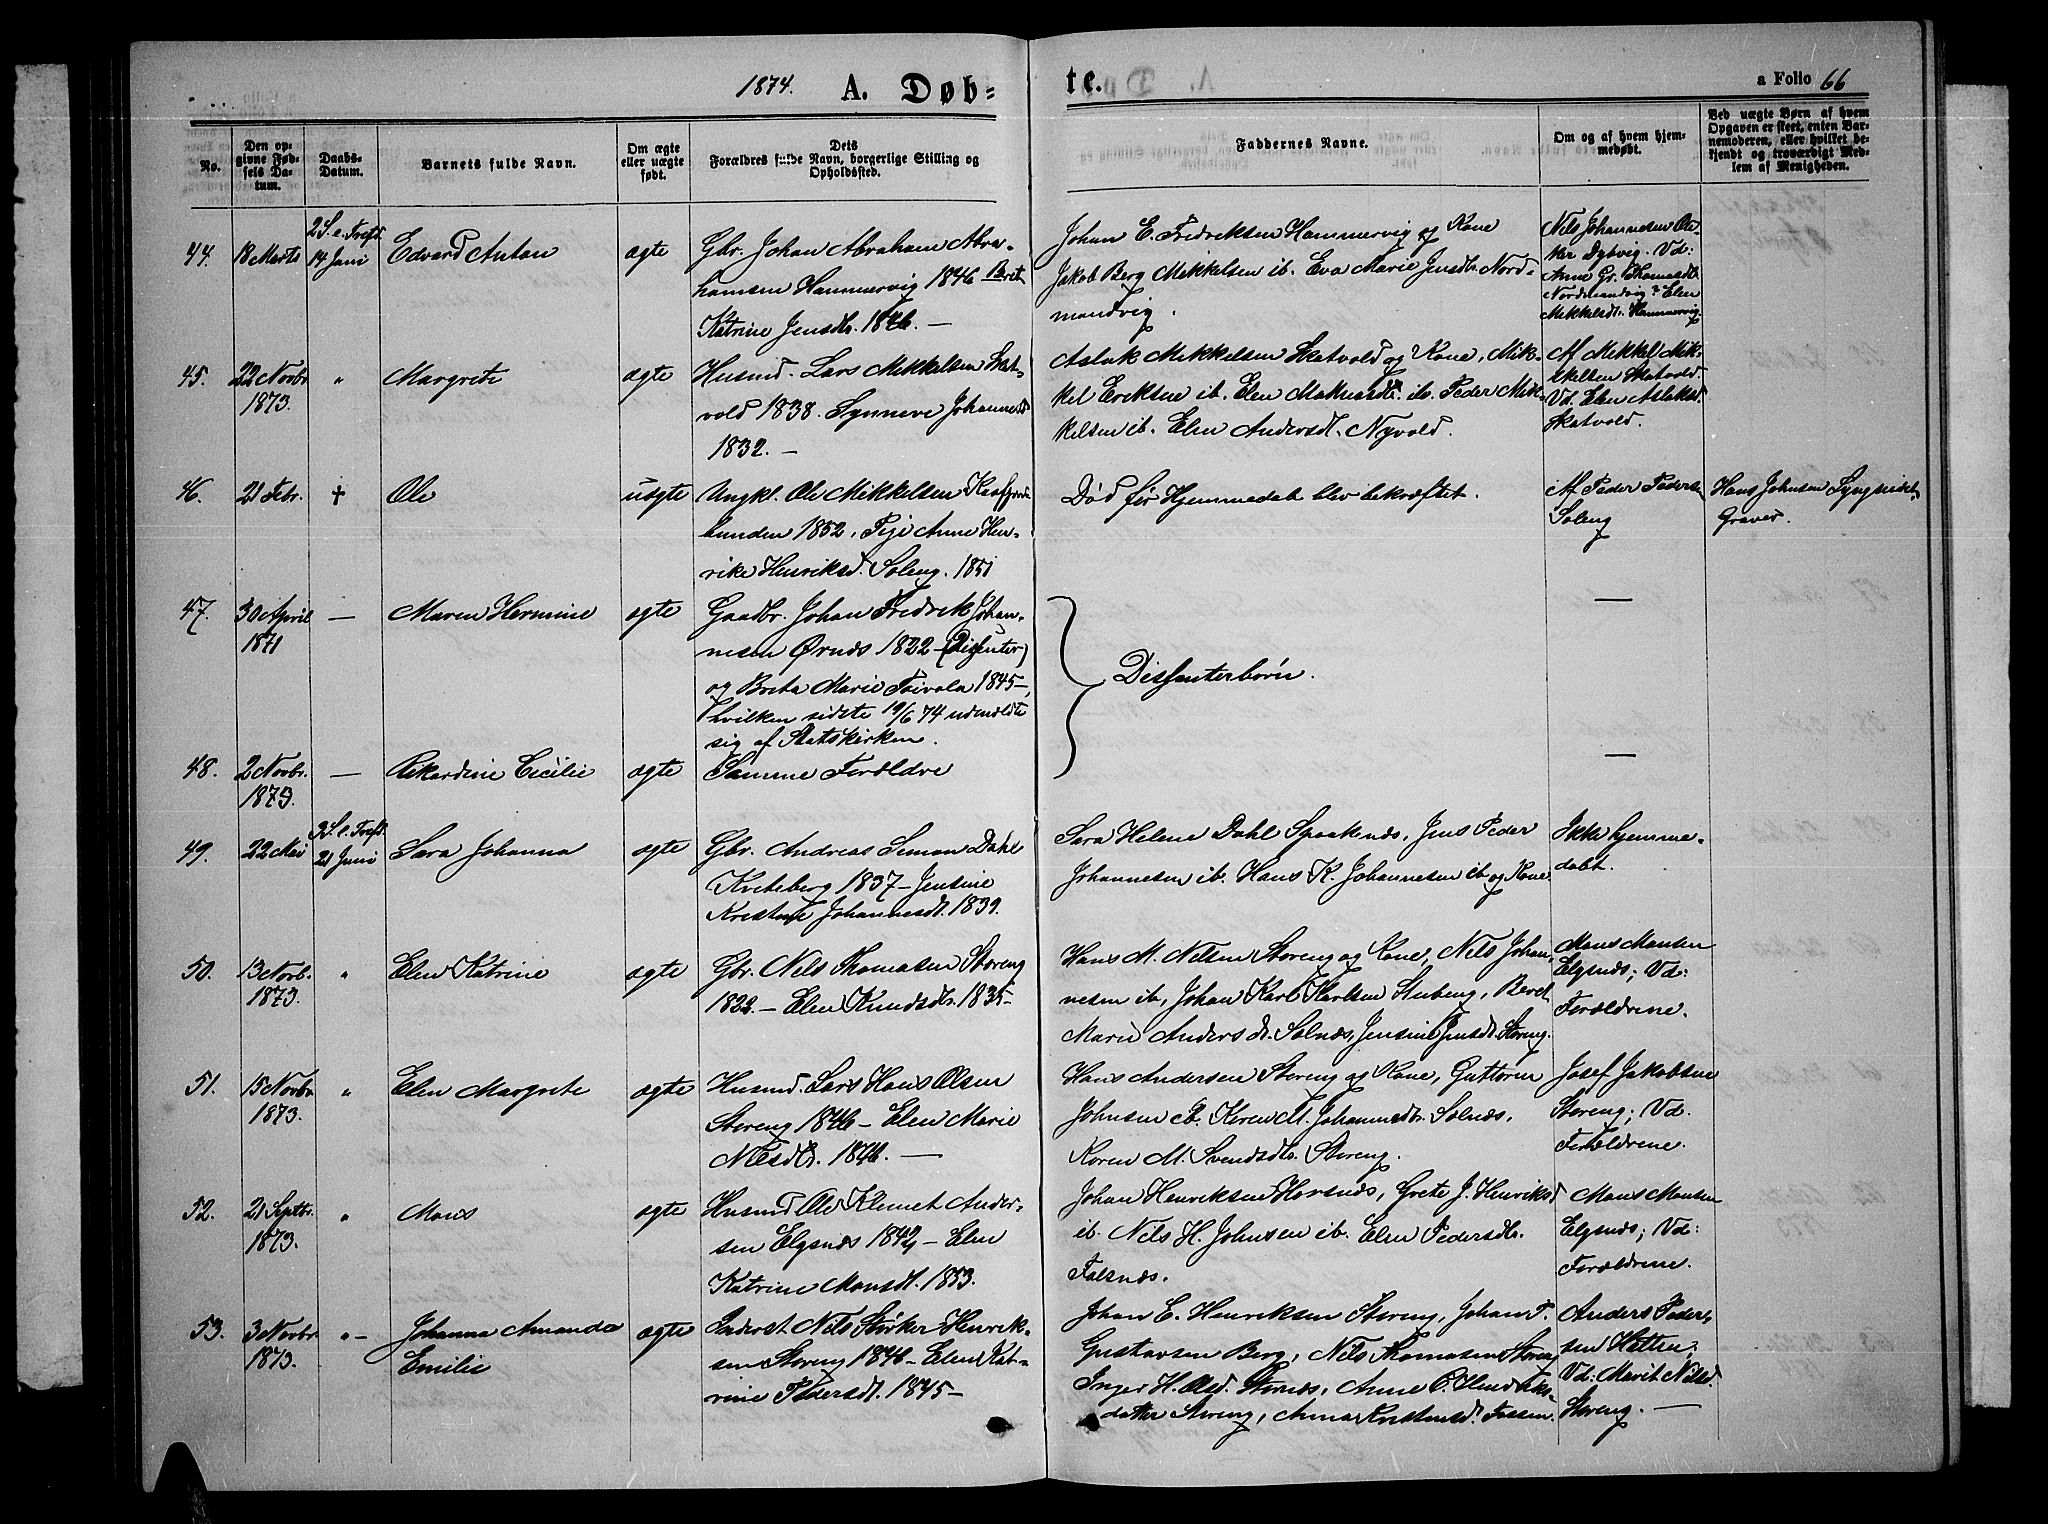 1874.
A. Døb=
te.
a Folio 66
No.
Den op-
givne Fød-
sels Da-
tum.
Daabs-
Datum.
Barnets fulde Navn.
Om ægte
eller uægte
født.
Dets
Forældres fulde Navn, borgerlige Stilling og
Opholdssted.
Faddernes Navne.
Om og af hvem hjem-
medøbt.
Ved uægte Børn af hvem
Opgaven er skeet, enten Bar-
nemoderen, eller hvilket be-
kjendt og troværdigt Med-
lem af Menigheden.
44.
18 Marts
2 S. e. Trefd.
14 Juni
Edvard Anton
ægte
Gbr. Johan Abraham Abra-
hamsen Hammervig 1846 Brit
Katrine Jensdtr. 1846. —
Johan E. Fredriksen Hammervig og Kone
Jakob Berg Mikkelsen ib. Eva Marie Jensdtr. Nord-
mandvig.
Nils Johannesen
Dybvig. Vd:
Anne Gr. Thomasdtr.
Nordmandvig Elen
Mikkelsdtr. Hammervig.
45.
22 Novbr
1873.
"
Margrete
ægte
Husmd. Lars Mikkelsen Skat-
vold 1838. Synneve Johannesd
1832. —
Aslak Mikkelsen Skatvold og Kone, Mik-
kel Eriksen ib. Elen ib. Peder Mik-
kelsen ib. Elen Andersdt. Nyvold.
Af Mikkel Mik-
kelsen Skatvold
Vd. Elen Aslaksd.
Skatvold.
46.
21 Febr.
†
Ole
uægte
Ungkl. Ole Mikkelsen Kaafjord-
bunden 1852, Pige Anne Hen-
rike Henriksd. Soleng. 1851
Død før Hjemmedåb blev bekræftet.
Af Peder Peders
Soleng
Hans Johnsen Lyngseidet
Graver.
47.
30 April
1871
—
Maren Hermine
ægte
Gaadbr. Johan Fredrik Johan-
nesen Ørnæs 1822 — (Dissenter)
og Breta Marie Toivola 1845 —,
hvilken sidste 19/6 74 udmeldte
sig af Statskirken.
Dissenterbørn.
—
48.
2 Novbr.
1873.
—
Rikardine Cecilie
ægte
Samme Forældre
—
49.
22 Mai
3 S. e. Trefd.
21 Juni
Sara Johanna
ægte
Gbr. Andreas Simon Dahl
Kveteberg 1837 — Jensine
Kristine Johannesdt. 1839.
Sara Helene Dahl Spaaknæs, Jens Peder
Johannesen ib. Hans K. Johannesen ib og Kone
Ikke hjemme-
døbt.
50.
13 Novb.
1873.
"
Elen Katrine
ægte
Gbr. Nels Thomasen Storeng
1822. — Elen Knudsdtr. 1835 —
Hans M. Nelsen Storeng og Kone, Nils Johan-
nesen ib, Johan Karl Karlsen Stubeng, Beret
Marie Andersdt. Solnæs, Jensine Jensdt. Storeng.
Mons Monsen
Elgsnæs; Vd:
Forældrene.
51.
15 Novbr
1873.
"
Elen Margrete
ægte
Husmd. Lars Hans Olsen
Storeng 1846 — Elen Marie
Nilsdtr. 1846. —
Hans Andersen Storeng og Kone, Guttorm
Johnsen ib. Karen M. Johannesdtr. Solnæs.
Karen M. Svendsdtr. Storeng.
Josef Jakobsen
Storeng; Vd.
Forældrene.
52.
21 Septbr.
1873.
"
Mons
ægte
Husmd Ole Klemet Ander-
sen Elgsnæs 1842 — Elen
Katrine Monsdt. 1853.
Johan Henriksen Horsnæs, Grete J. Henriksd
ib. Nils H. Johnsen ib. Elen Pedersdtr.
Falsnæs.
Mons Monsen
Elgsnæs; Vd:
Forældrene.
53.
3 Novbr
1873.
" —
Johanna Amanda
Emilie
ægte
Inderst Nils Størker Henrik-
sen Storeng 1846 — Elen Kat-
rine Pedersdt. 1845 —
Johan E. Henriksen Storeng, Johan P.
Gustavsen Berg, Nils Thomasen Storeng
Inger H. Olsd. Stornæs, Anne C. Hendriks-
datter Storeng, Anna Kristensd.
Anders Peder-
sen Hatten;
Vd: Marit Nilsd.
Storeng. —